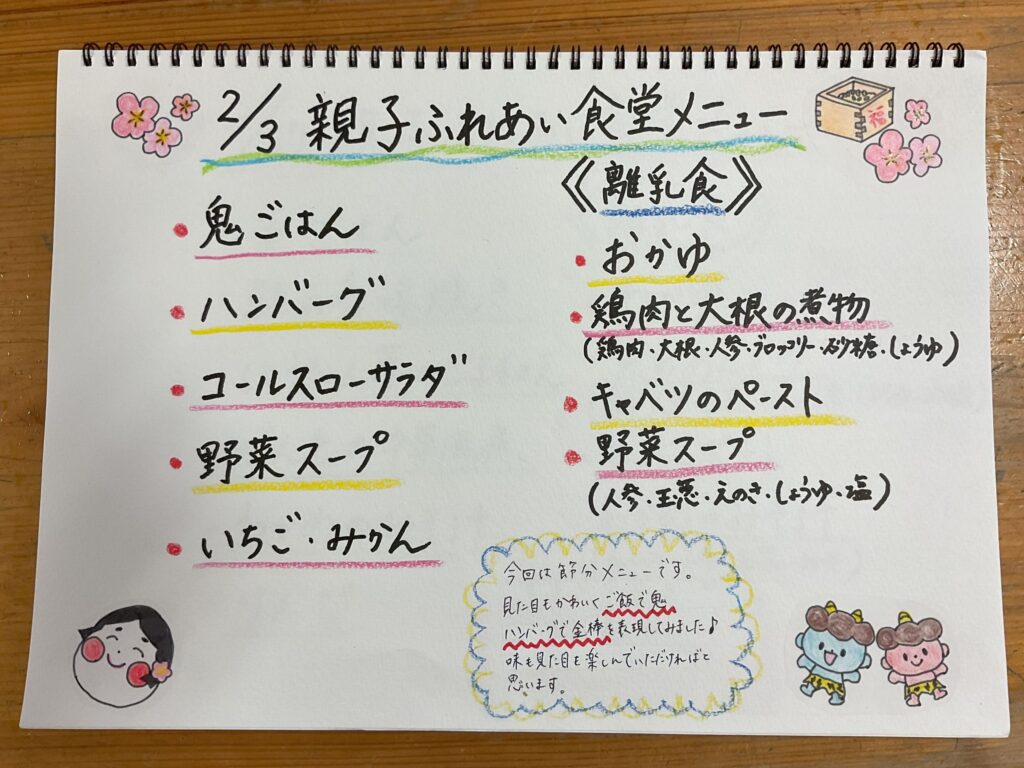 2/3 親子ふれあい食堂メニュー
福
・鬼ごはん
・ハンバーグ
・コールスローサラダ
・野菜スープ
・いちご・みかん
《離乳食》
・おかゆ
・鶏肉と大根の煮物
(鶏肉・大根・人参・ブロッコリー・砂糖・しょうゆ)
・キャベツのペースト
・野菜スープ
(人参・玉葱・えのき・しょうゆ・塩)
今回は節分メニューです。
見た目もかわいくご飯で鬼
ハンバーグで金棒を表現してみました♪
味も見た目も楽しんでいただければと
思います。